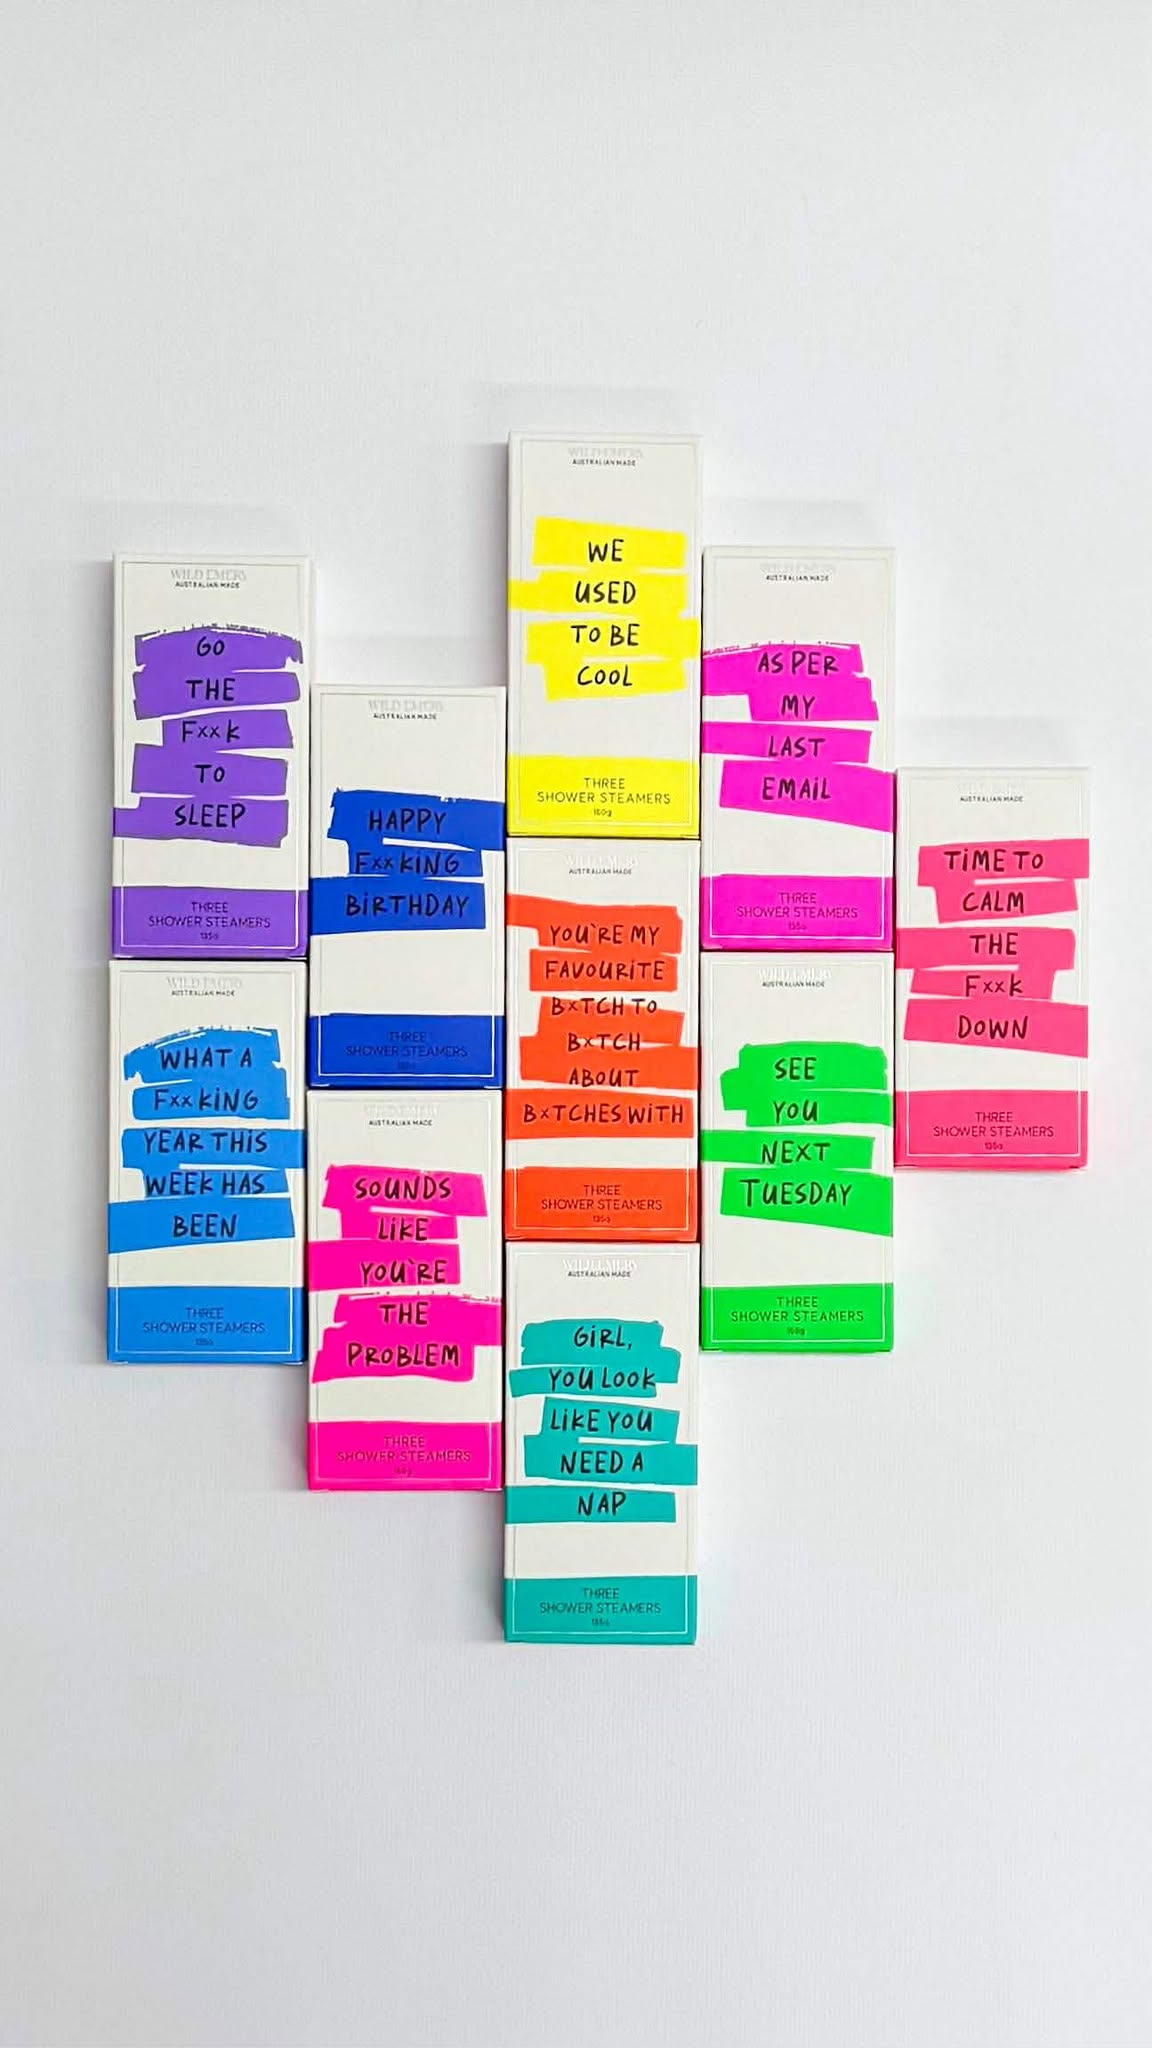 WILD EMERY
AUSTRALIAN MADE
GO
THE
FxxK
TO
SLEEP
THREE
SHOWER STEAMERS
135g
WILD EMERY
AUSTRALIAN MADE
WHAT A
FxxKING
YEAR THIS
WEEK HAS
BEEN
THREE
SHOWER STEAMERS
135g
WILD EMERY
AUSTRALIAN MADE
HAPPY
FxxKING
BIRTHDAY
THREE
SHOWER STEAMERS
AUSTRALIAN MADE
SOUNDS
LIKE
YOU'RE
THE
PROBLEM
THREE
SHOWER STEAMERS
WILD EMERY
AUSTRALIAN MADE
WE
USED
TO BE
COOL
THREE
SHOWER STEAMERS
160g
WILD EMERY
AUSTRALIAN MADE
YOU'RE MY
FAVOURITE
BxTCH TO
BxTCH
ABOUT
BxTCHES WITH
THREE
SHOWER STEAMERS
135g
WILD EMERY
AUSTRALIAN MADE
GIRL,
YOU LOOK
LIKE YOU
NEED A
NAP
THREE
SHOWER STEAMERS
135g
WILD EMERY
AUSTRALIAN MADE
AS PER
MY
LAST
EMAIL
THREE
SHOWER STEAMERS
135g
WILD EMERY
AUSTRALIAN MADE
SEE
YOU
NEXT
TUESDAY
THREE
SHOWER STEAMERS
160g
AUSTRALIAN MADE
TIME TO
CALM
THE
FxxK
DOWN
THREE
SHOWER STEAMERS
135g